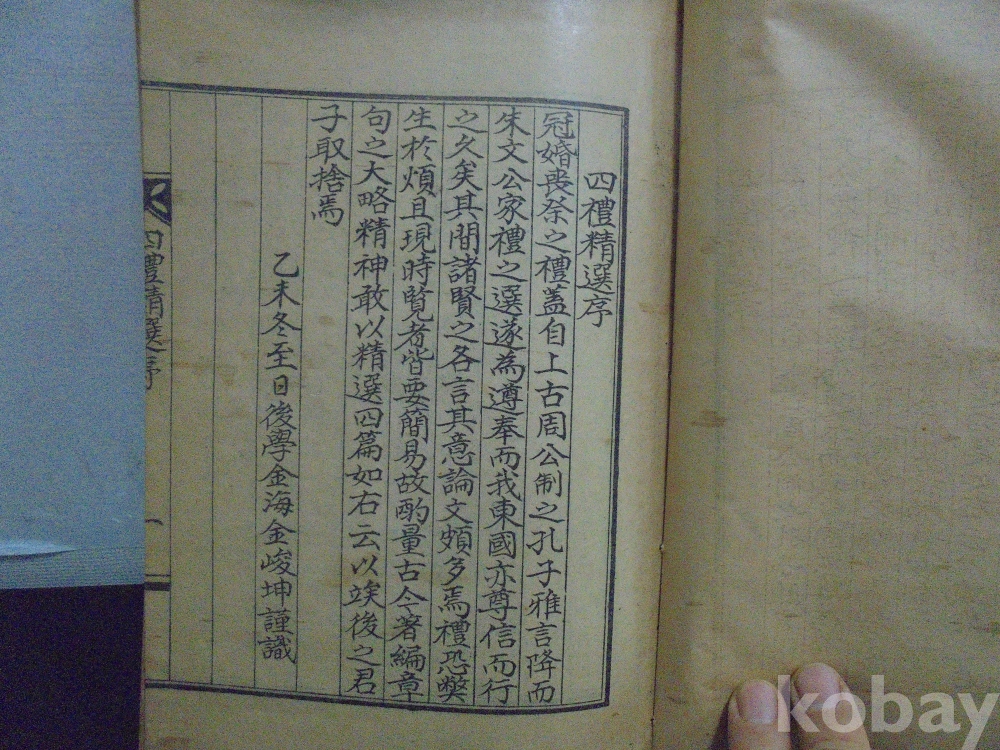 四禮精選序
冠婚喪祭之禮盖自上古周公制之孔子雅言降而
朱文公家禮之選遂為遵奉而我東國亦尊信而行
之久矣其間諸賢之各言其意論文頗多焉禮恐獘
生於煩且現時覧者皆要簡易故酌量古今著編章
句之大略精神敢以精選四篇如右云以竢後之君
子取捨焉
乙未冬至日後學金海金峻坤謹識
四禮精選序
一
kobay